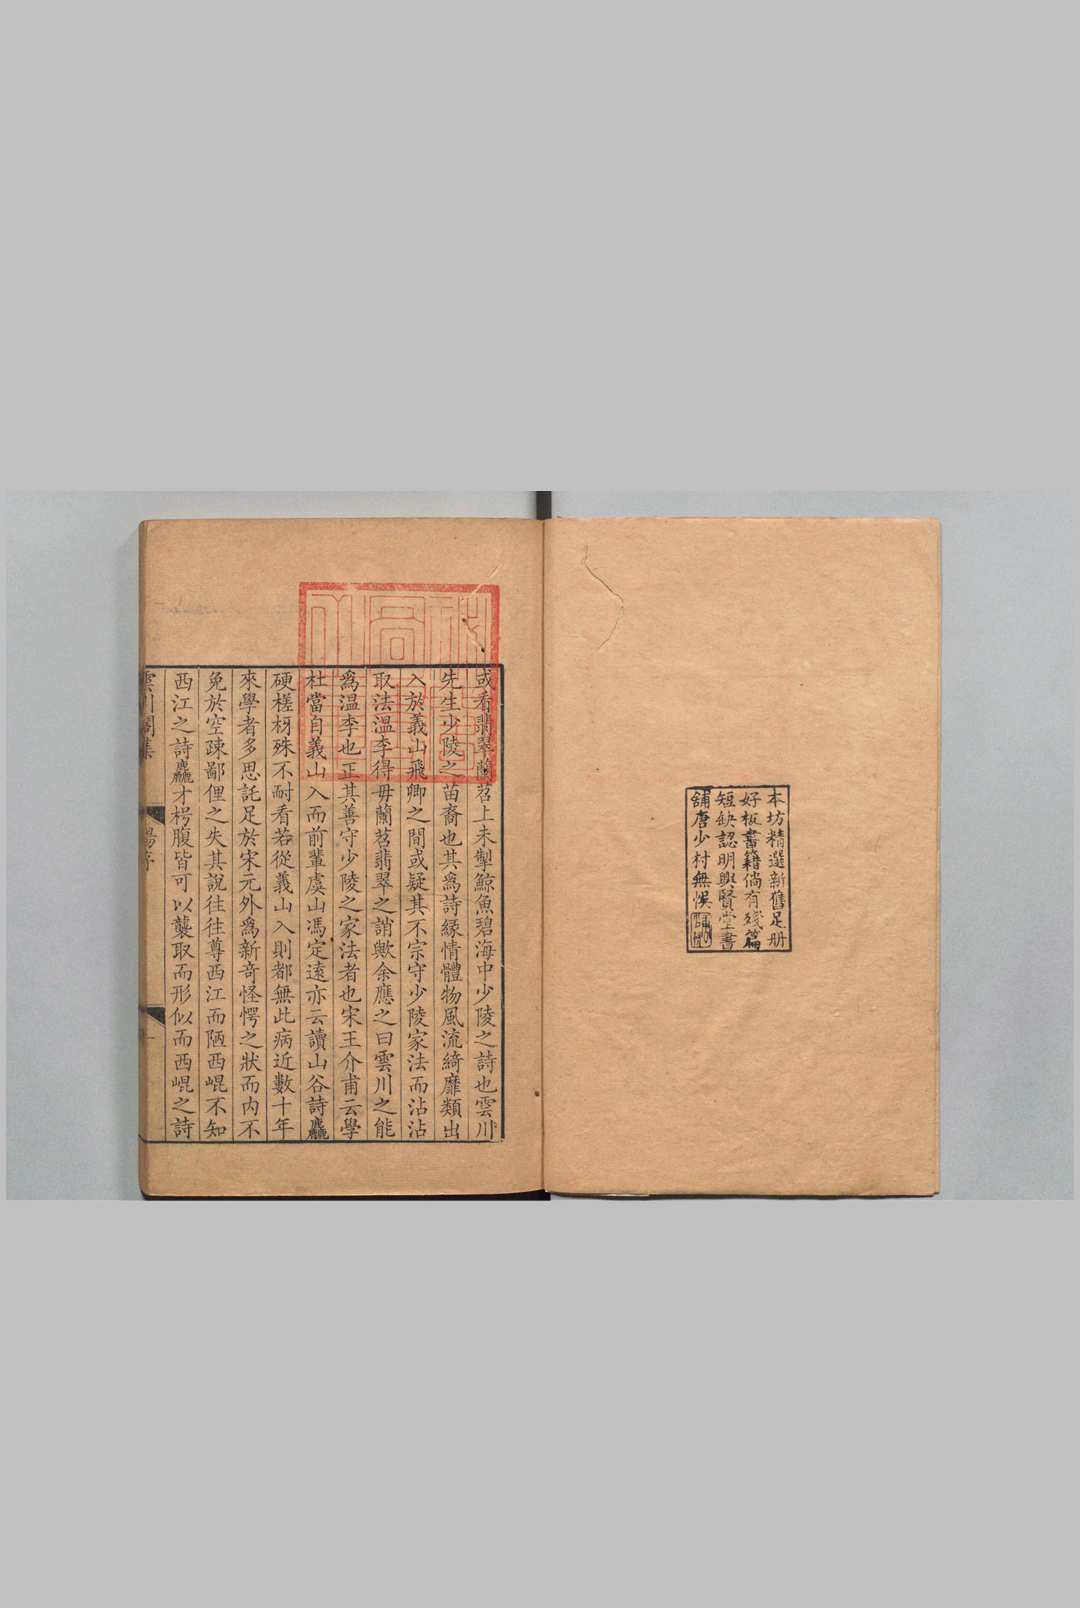 本坊精選新舊足册
好板書籍倘有殘篇
短缺認明興賢堂書
舖唐少村無悞
或看翡翠蘭苕上未掣鯨魚碧海中少陵之詩也雲川
先生少陵之苗裔也其爲詩緣情體物風流綺靡類出
入於義山飛卿之間或疑其不宗守少陵家法而沾沾
取法溫李得毋蘭苕翡翠之誚歟余應之曰雲川之能
爲溫李也正其善守少陵之家法者也宋王介甫云學
杜當自義山入而前輩虞山馮定遠亦云讀山谷詩麤
硬槎枒殊不耐看若從義山入則都無此病近數十年
來學者多思託足於宋元外爲新奇怪愕之狀而内不
免於空疎鄙俚之失其說往往尊西江而陋西崐不知
西江之詩麤才枵腹皆可以襲取而形似而西崐之詩
雲川閣集
楊序
一